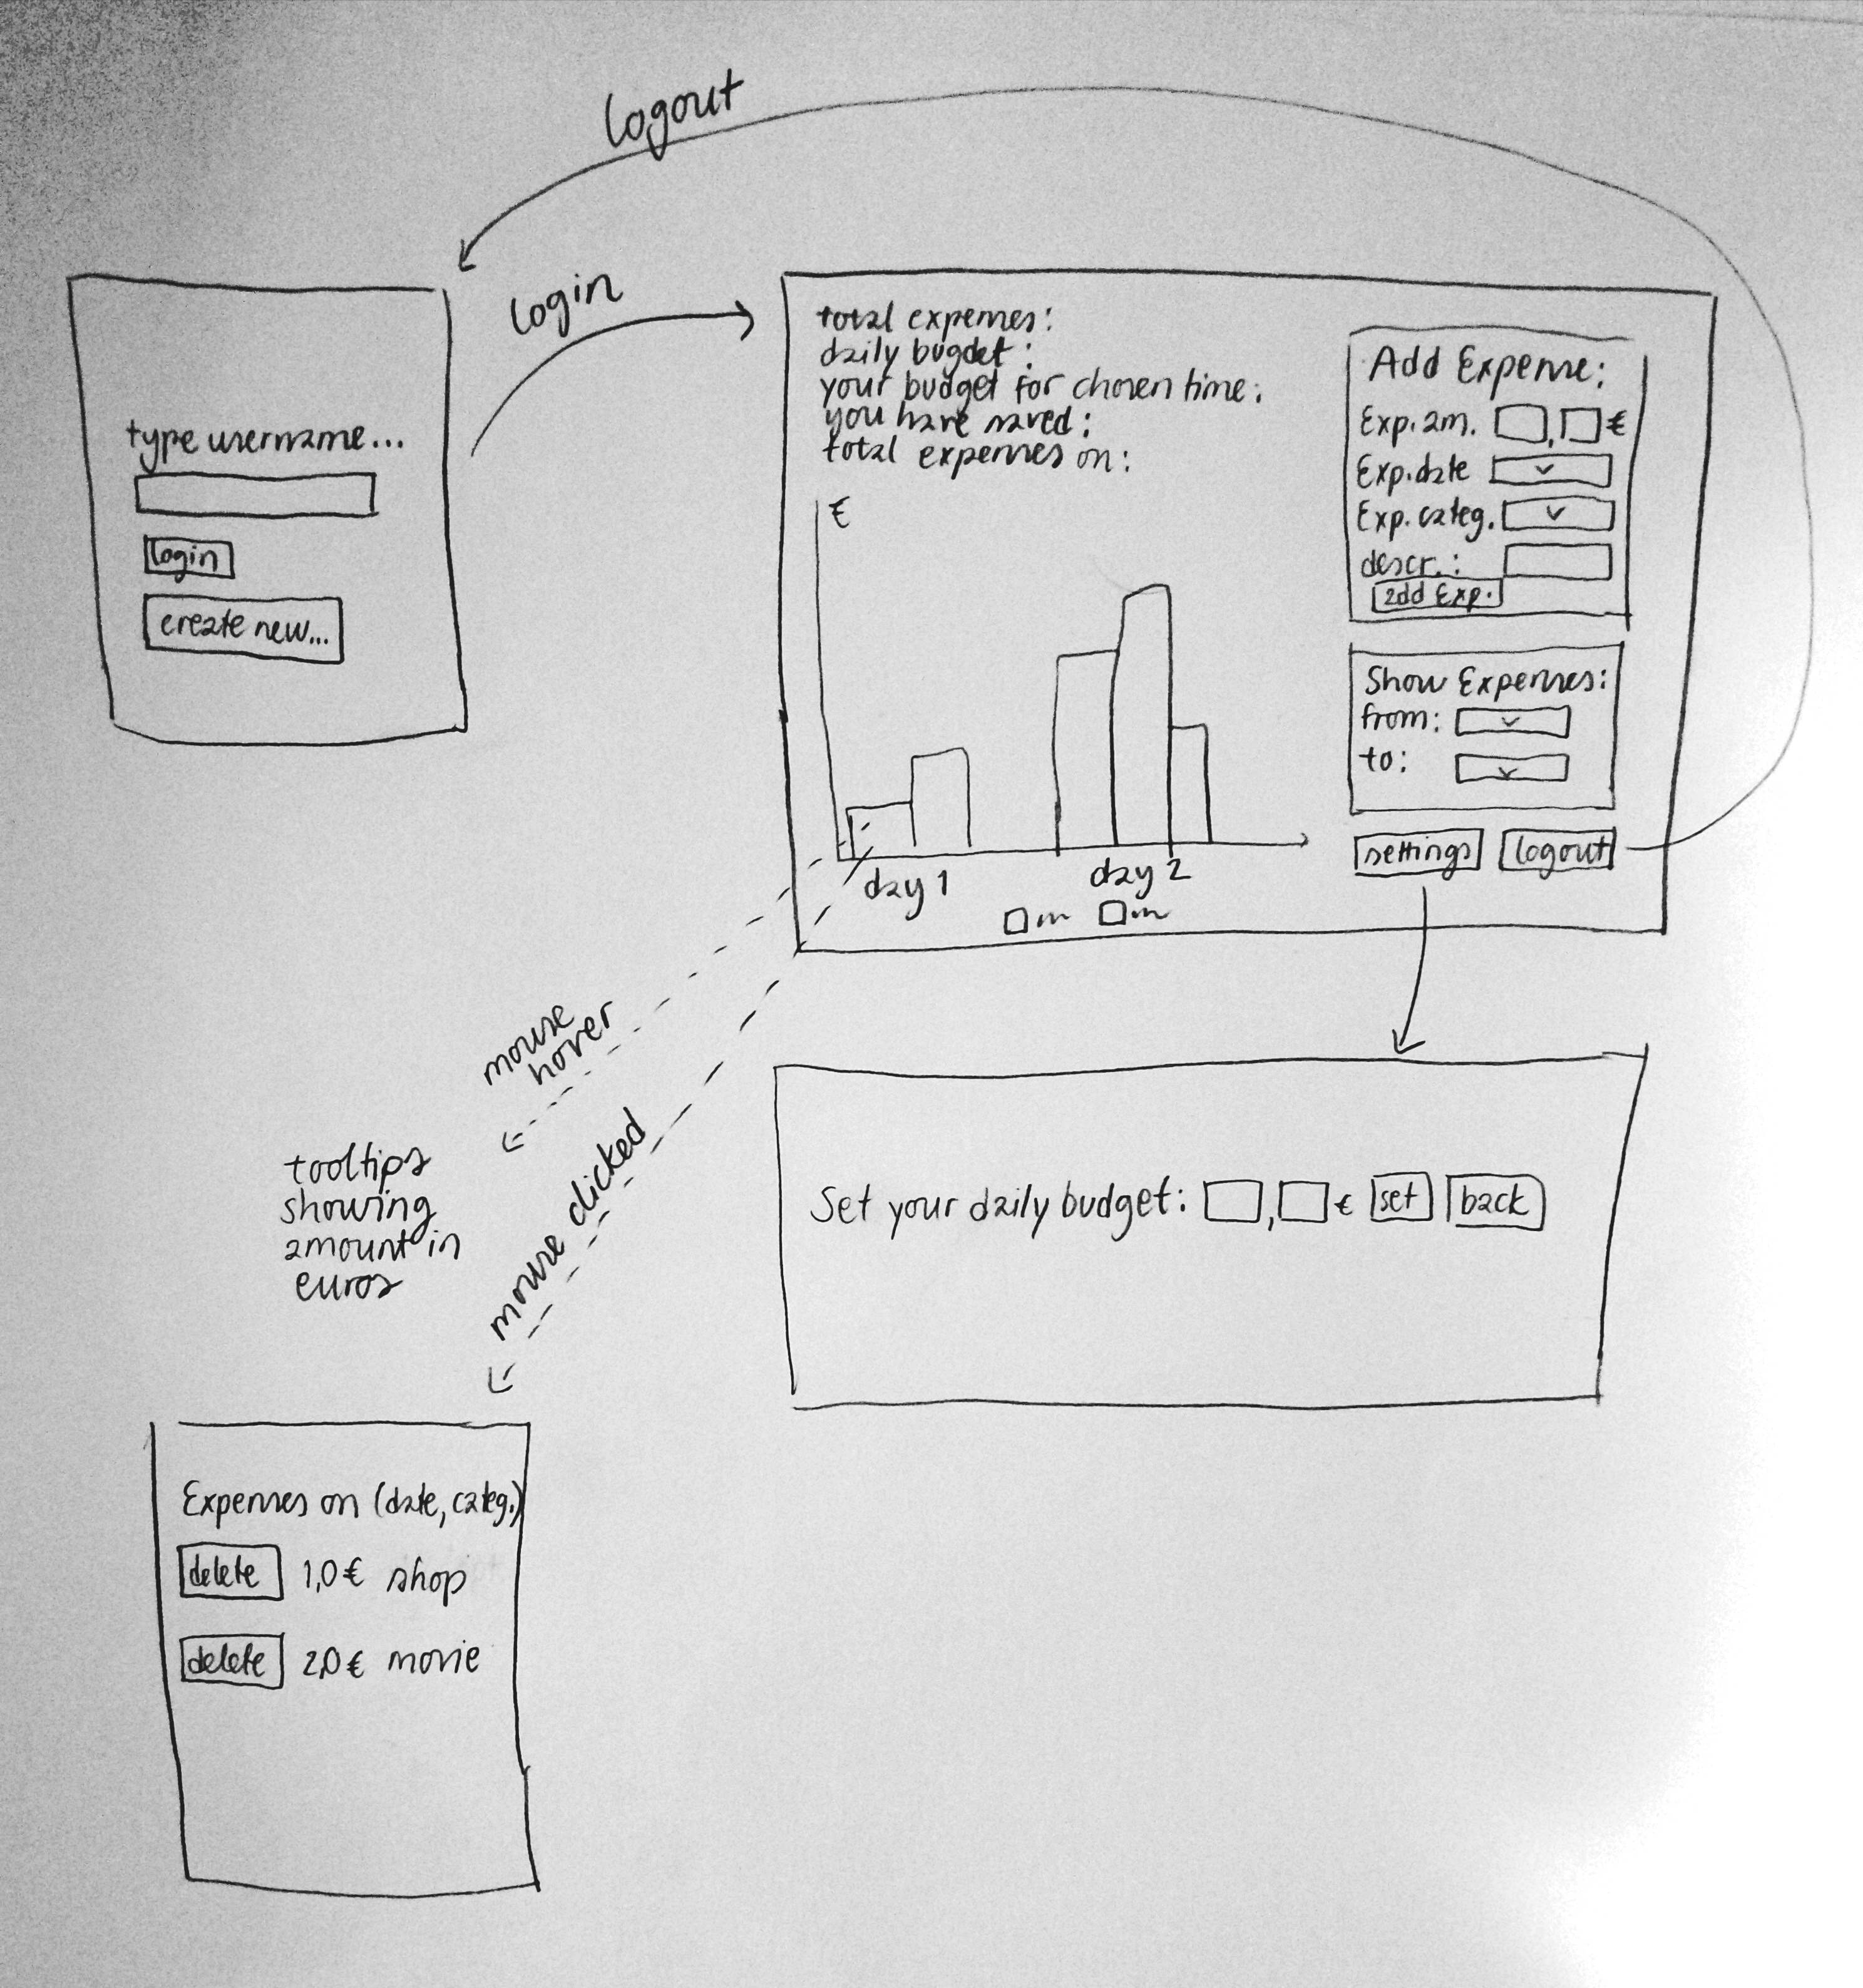 logout
login
type username...
login
create new...
total expenses:
daily bugdet:
your budget for chosen time:
you have saved:
total expenses on:
€
day 1
day 2
Add Expense:
Exp. am. , €
Exp. date
Exp. categ.
descr.:
add Exp.
Show Expenses:
from:
to:
settings
logout
mouse
hover
tooltips
showing
amount in
euros
mouse clicked
Set your daily budget: , € set back
Expenses on (date, categ.)
delete 1,0 € shop
delete 2,0 € movie